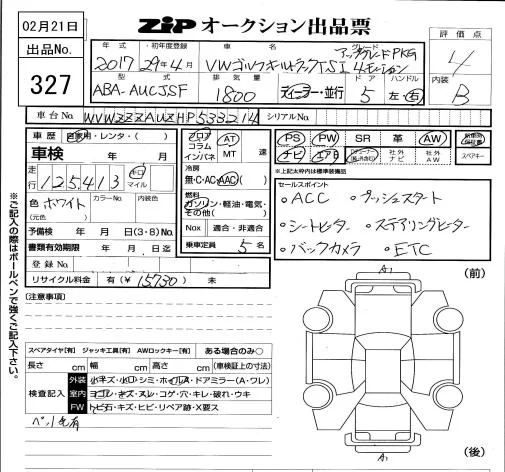 02月21日
ZiP オークション出品票
評価点
4
出品No.
327
年式
・初年度登録
車名
グレード
2017
29年4月
VWゴルフオールトラックTSI 4モーション
アップグレードPKG
内装
B
型式
排気量
ドア
ハンドル
ABA-AUCJSF
1800
ディーラー・並行
5
左・右
車台No.
WVWZZZAUZHP533214
シリアルNo.
車歴
自家用・レンタ・( )
車検
年 月
走行
125,413
キロ
マイル
色
ホワイト
カラーNo.
内装色
(元色 )
予備検 年 月 日(3・8)No.
書類有効期限 年 月 日迄
登録No.
リサイクル料金 有(¥ 15,730 ) 未
フロア
コラム
インパネ
AT
MT 速
冷房
無・C・AC・AAC( )
燃料
ガソリン・軽油・電気・
その他( )
Nox 適合・非適合
乗車定員 5 名
PS PW SR 革 AW
ナビ エアB
社外ナビ
社外AW
スペアキー
※上記太枠内は標準装備品
セールスポイント
・ACC ・プッシュスタート
・シートヒーター ・ステアリングヒーター
・バックカメラ ・ETC
※ご記入の際はボールペンで強くご記入下さい。
[注意事項]
スペアタイヤ[有] ジャッキ工具[有] AWロックキー[有] ある場合のみ○
長さ cm 幅 cm 高さ cm (車検証上の寸法)
検査記入
外装 小キズ・小凹・シミ・ホイルA・ドアミラー(A・ワレ)
室内 ヨゴレ・キズ・スレ・コゲ・穴・キレ・破れ・ウキ
FW トビ石・キズ・ヒビ・リペア跡・X要ス
(前)
A1
A1
(後)